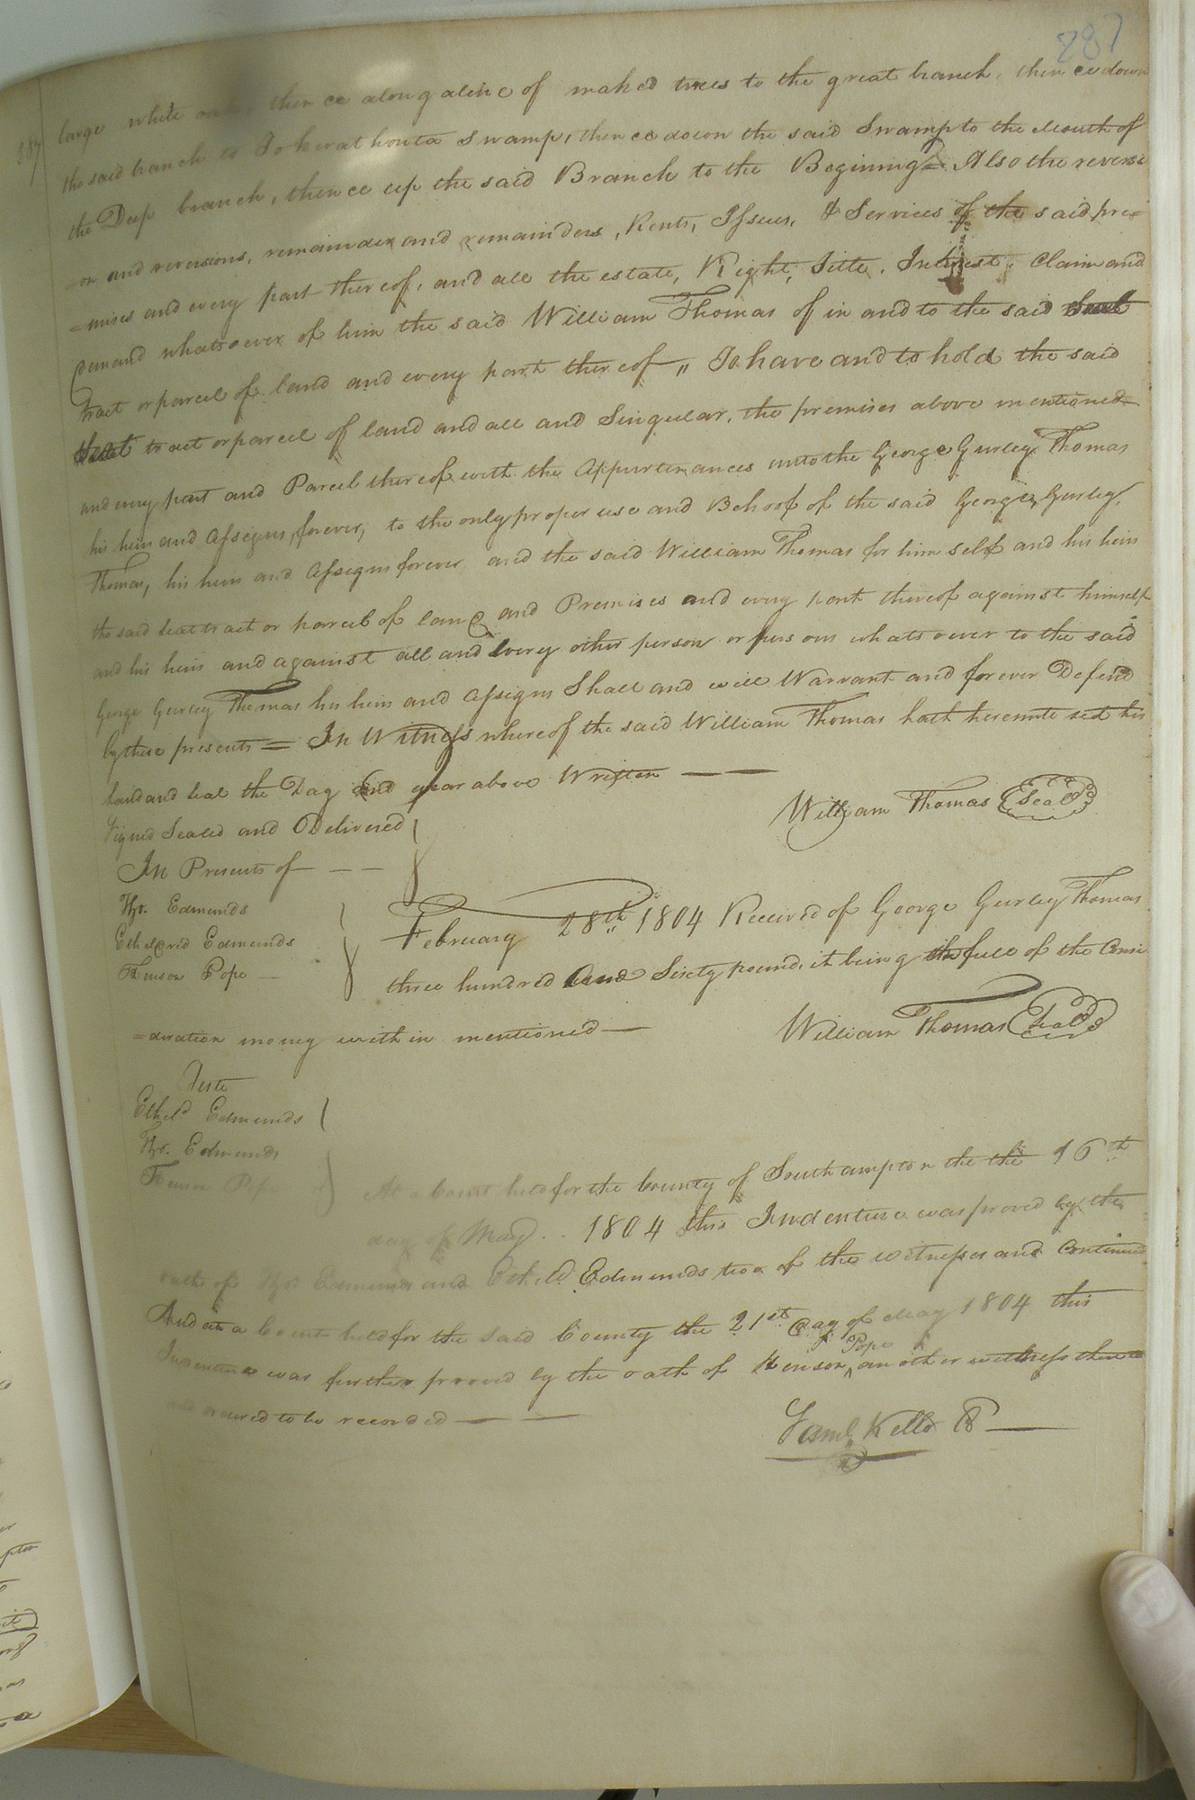 287
287
large white oak, thence along a line of maked trees to the great branch, thence down
the said branch to Tokwathonta Swamp, thence down the said Swamp to the Mouth of
the Deep branch, thence up the said Branch to the Beginning = Also the reversi
=on and reversions, remainder and remainders, Rents, Issues, & Services of the said pre=
=mises and every part thereof, and all the estate, Right, Title, Interest, Claim and
Demand whatsoever of him the said William Thomas of in and to the said
tract or parcel of land and every part thereof " To have and to hold the said
tract or parcel of land and all and Singular, the premises above mentioned
and every part and Parcel thereof with the Appurtenances unto the George Gurley Thomas
his heirs and Assigns, forever, to the only proper use and Behoof of the said George Gurley,
Thomas, his heirs and Assigns forever and the said William Thomas for him self and his heirs
the said seat tract or parcel of land and Premises and every part thereof against himself
and his heirs and against all and Every other person or persons whatsoever to the said
George Gurley Thomas his heirs and Assigns Shall and will Warrant and forever Defend
by these presents = In Witness whereof the said William Thomas hath hereunto set his
hand and seal the Day and year above Written ——
William Thomas (Seal)
Signed Sealed and Delivered
In Presents of — —
Thos. Edmunds
Etheldred Edmunds
Henson Pope —
February 28th 1804 Received of George Gurley Thomas
three hundred and Sixty pounds it being the full of the Consi
=deration money with in mentioned —
William Thomas (Seal)
Teste
Etheld Edmunds
Thos. Edmunds
Henson Pope
At a Court held for the County of Southampton the the 16th
day of May . . 1804 this Indenture was proved by the
oath of Thos. Edmunds and Etheld. Edmunds two of the witnesses and Continued
And at a Court held for the said County the 21st Day of May 1804 this
Indenture was further proved by the oath of Henson ^ Pope another witness thereto
and ordered to be recorded — —
Saml. Kello C —